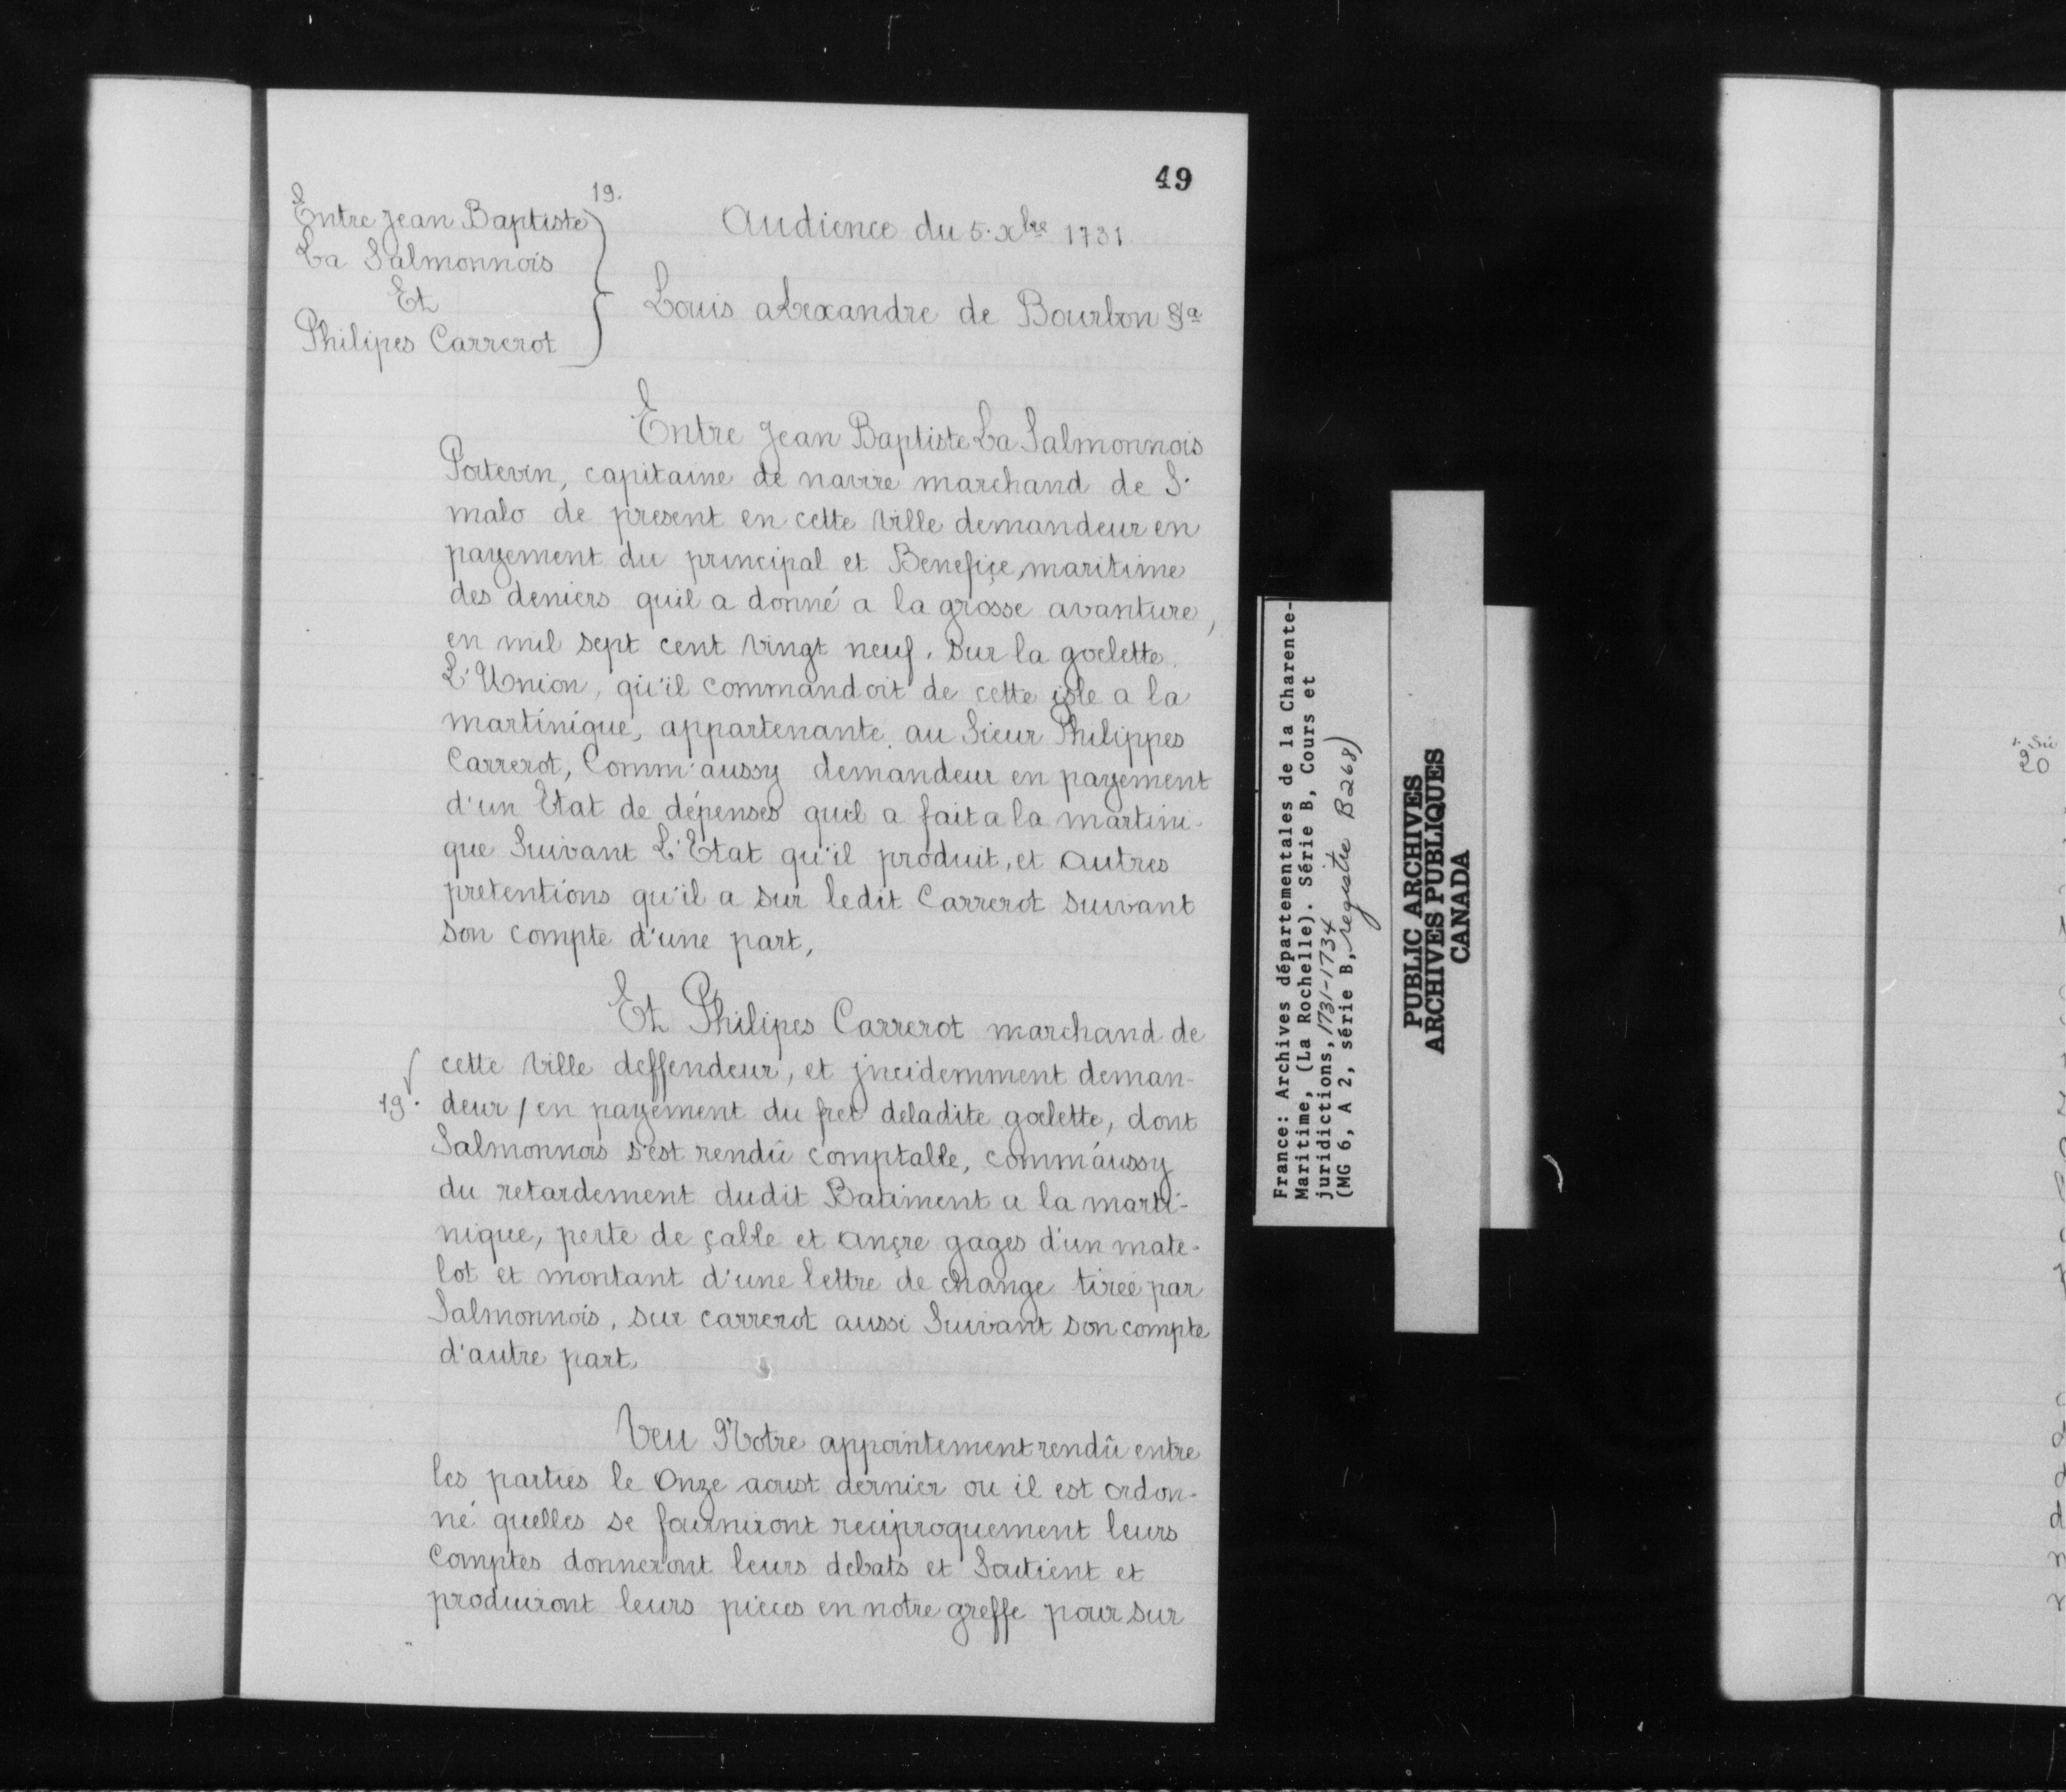 49
19.
Entre Jean Baptiste
La Salmonnois
Et
Philipes Carrerot
Audience du 5. xbre 1731
Louis alexandre de Bourbon &a
Entre Jean Baptiste La Salmonnois
Portevin, capitaine de navire marchand de S.
malo de present en cette ville demandeur en
payement du principal et Benefiçe, maritime
des deniers quil a donné a la grosse avanture,
en mil sept cent vingt neuf. sur la goelette.
L'Union, qu'il commandoit de cette isle a la
martinique, appartenante. au Sieur Philippes
Carrerot, Comm'aussy demandeur en payement
d'un Etat de dépenses quil a fait a la martini-
que Suivant L'Etat qu'il produit, et autres
pretentions qu'il a sur ledit Carrerot suivant
son compte d'une part,
Et Philipes Carrerot marchand de
cette ville deffendeur, et jncidemment deman-
19. deur / en payement du fret deladite goelette, dont
Salmonnois s'est rendû comptalle, comm'aussy
du retardement dudit Batiment a la marti-
nique, perte de çable et ançre gages d'un mate-
lot et montant d'une lettre de change tirée par
Salmonnois, sur carrerot aussi Suivant son compte
d'autre part,
Veu Notre appointement rendû entre
les parties le Onze aoust dernier ou il est ordon-
né quelles se fourniront reciproquement leurs
Comptes donneront leurs debats et Soutient et
produiront leurs pieces en notre greffe pour sur
France: Archives départementales de la Charente-
Maritime, (La Rochelle). Série B, Cours et
juridictions, 1731-1734
(MG 6, A 2, série B, registre B268)
PUBLIC ARCHIVES
ARCHIVES PUBLIQUES
CANADA
20